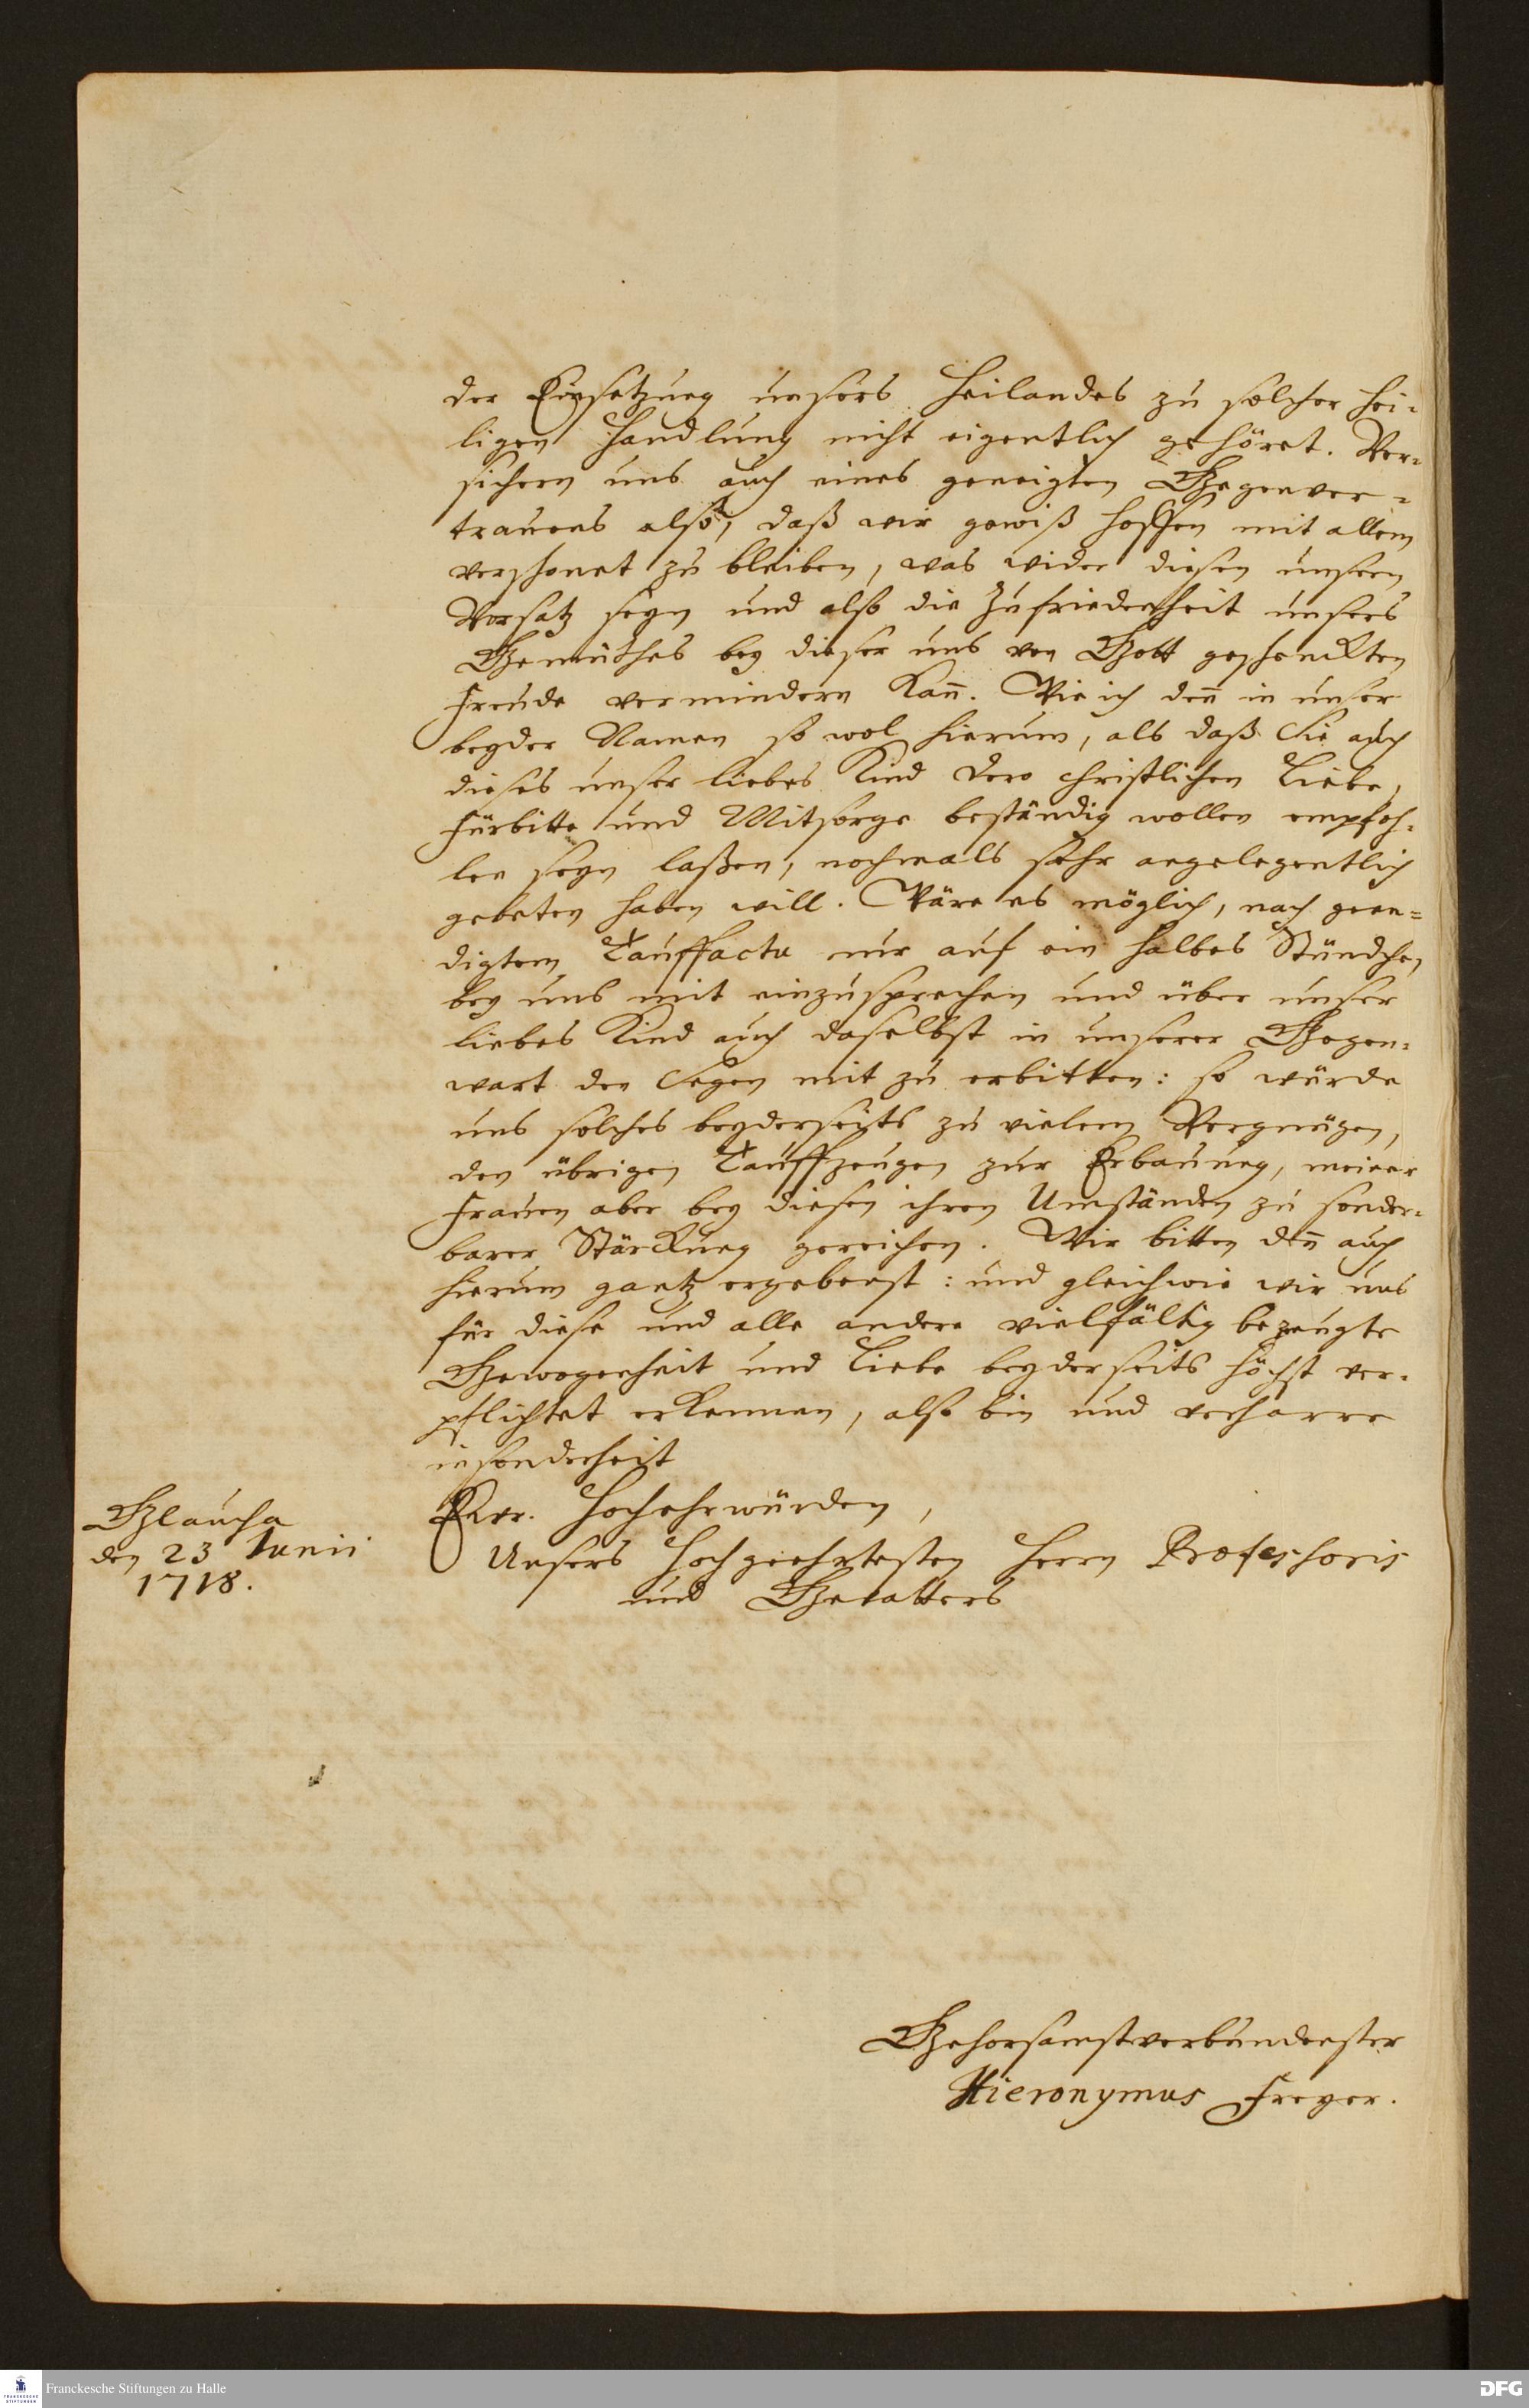 der Einsetzung unsers Heilandes zu solcher hei-
ligen Handlung nicht eigentlich gehöret. Ver-
sichern uns auch eines geneigten Gegenver-
trauens also, daß wir gewiß hoffen mit allem
verschonet zu bleiben, was wider diesen unsern
Vorsatz seyn und also die Zufriedenheit unsers
Gemüthes bey dieser uns von Gott geschenckten
Freude vermindern kan̄. Wie ich den̄ in unser
beyder Namen so wol hierum, als daß Sie auch
dieses unser liebes Kind Dero christlichen Liebe,
Fürbitte und Mitsorge beständig wollen empfoh-
len seyn laßen, nochmals sehr angelegentlich
gebeten haben will. Wäre es möglich, nach geen-
digtem Tauffactu nur auf ein halbes Stündchen
bey uns mit einzusprechen und über unser
liebes Kind auch daselbst in unserer Gegen-
wart den Segen mit zu erbitten: so würde
uns solches beyderseits zu vielem Vergnügen,
den übrigen Tauffzeugen zur Erbauung, meiner
Frauen aber bey diesen ihren Umständen zu sonder-
barer Stärckung gereichen. Wir bitten den̄ auch
hierum gantz ergebenst: und gleichwie wir uns
für diese und alle andere vielfältig bezeugte
Gewogenheit und Liebe beyderseits höchst ver-
pflichtet erkennen, also bin und verharre
insonderheit
Ewr. Hochehrwürden,
Unsers Hochgeehrtesten Herrn Professoris
und Gevatters
Glaucha
den 23 Junii
1718.
Gehorsamstverbundenster
Hieronymus Freyer.
Franckesche Stiftungen zu Halle
DFG